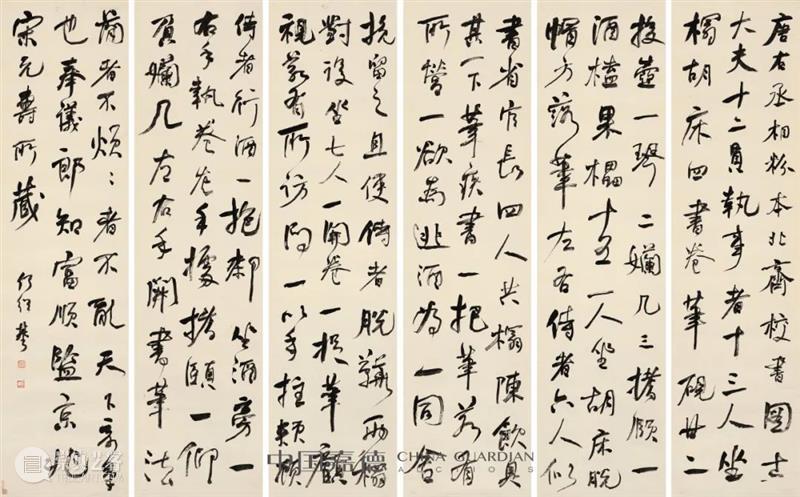 唐右丞相粉本北齊校書圖士
大夫十二員執事者十三人坐
榻胡床四書卷筆硯廿二
投壺一琴二嬾几三搘頤一
酒榼果櫑十五一人坐胡床脫
帽方落筆左右侍者六人似
書省官長四人共榻陳飲具
其一下筆疾書一把筆若有
所營一欲為逃酒為一同舍
挽留之且使侍者脫鞾兩榻
對設坐七人一開卷一捉筆顧
視若有所訪問一以手拄頰顧
侍者行酒一抱膝坐酒旁一
右手執卷左手據搘頤一仰
負嬾几左右手開書筆法
簡者不煩〻者不亂天下奇筆
也奉議郎知富順監京兆
宋元壽所藏
何紹基
中国嘉德 CHINA GUARDIAN
AUCTIONS
雅昌艺术网